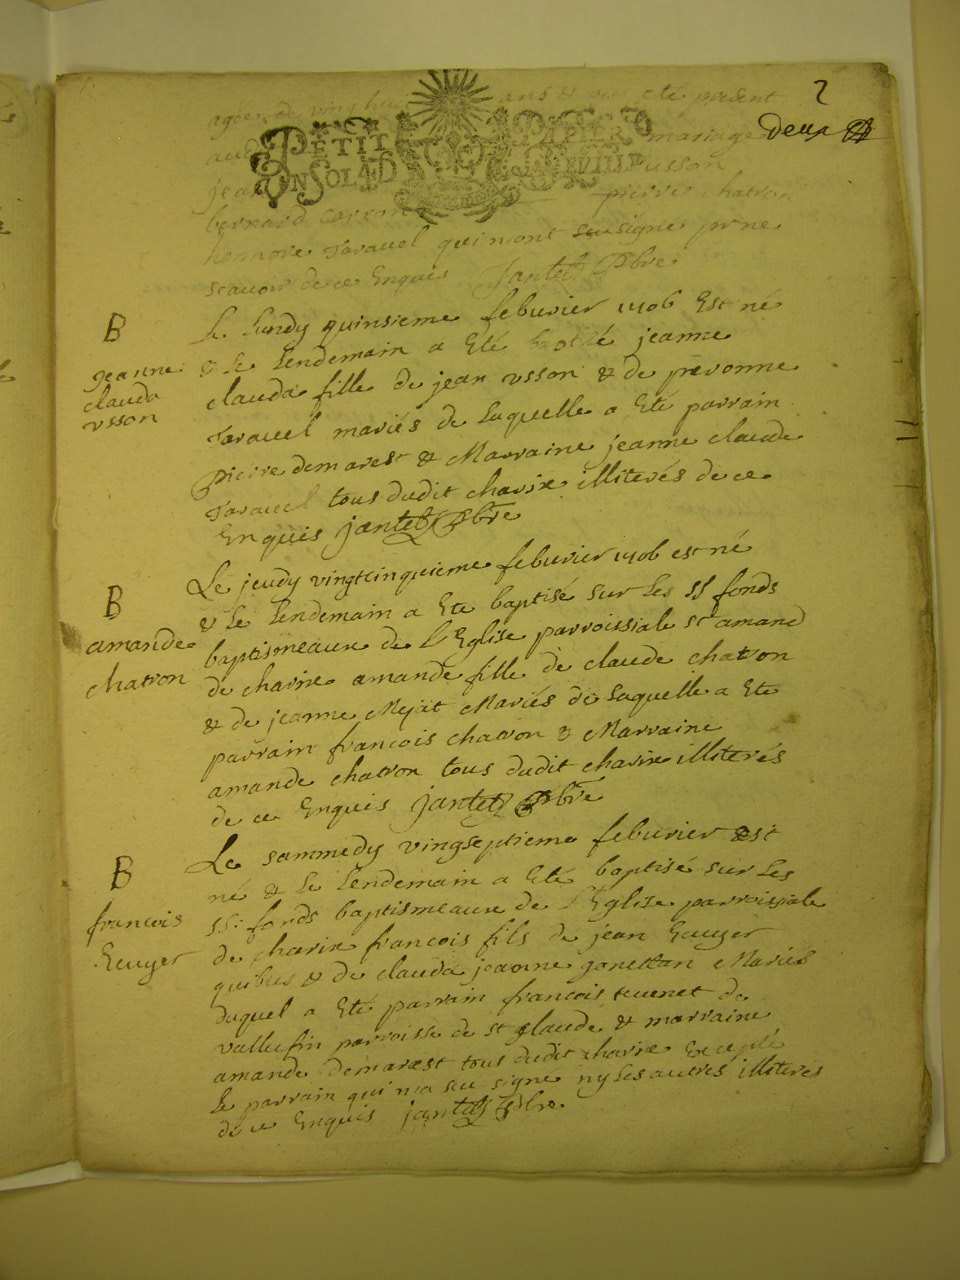 2
agée de vingt huit ans & ont eté presents
deux
PETIT PAPIER
UN SOL 4 D
au mariage
jean usson
bernard pierre chatron
honnore Taravel qui n'ont seu signé pr ne
scavoir de ce Enquis Jantet Pbre
B
jeanne
clauda
usson
Le Lundy quinsieme feburier 1706 Est né
& Le Lendemain a Eté batisé jeanne
clauda fille de jean usson & de pevonne
Taravel mariés de Laquelle a Eté parrain
pierre demarest & Marraine jeanne claude
Taravel tous dudit charix illiterés de ce
Enquis jantet Pbre
B
amande
chatron
Le jeudy vingtcinquieme feburier 1706 est né
& Le Lendemain a Ete baptisé sur Les SS fonds
baptismeaux de L'Eglise parroissiale st amand
de charix amande fille de claude chatron
& de jeanne Mejat Mariés de Laquelle a Ete
parrain francois chatron & Marraine
amande chatron tous dudit charix illiterés
de ce Enquis jantet Pbre
B
francois
Ecuyer
Le sammedy vingseptieme feburier est
né & Le Lendemain a Eté baptisé sur Les
SS: fonds baptismeaux de L'Eglise parroissiale
de charix francois fils de jean Ecuyer
quibus & de clauda jeanne Mariés
duquel a Eté parrain francois tevenet de
vallufin parroisse de st glaude & marraine
amande demarest tous dudit charix Excepté
Le parrain qui n'a seu signe ny Les autres illiteres
de ce Enquis jantet Pbre.